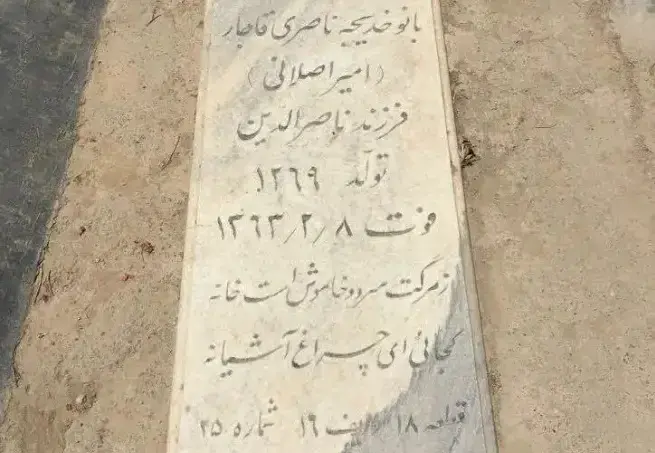 بانو خدیجه ناصری قاجار
(امیراصلانی)
فرزند ناصرالدین
تولد ۱۲۶۹
فوت ۱۳۶۳/۲/۸
ازمرگت سرد و خاموش است خانه
کجائی ای چراغ آشیانه
قطعه ۱۸ ردیف ۱۶ شماره ۲۵